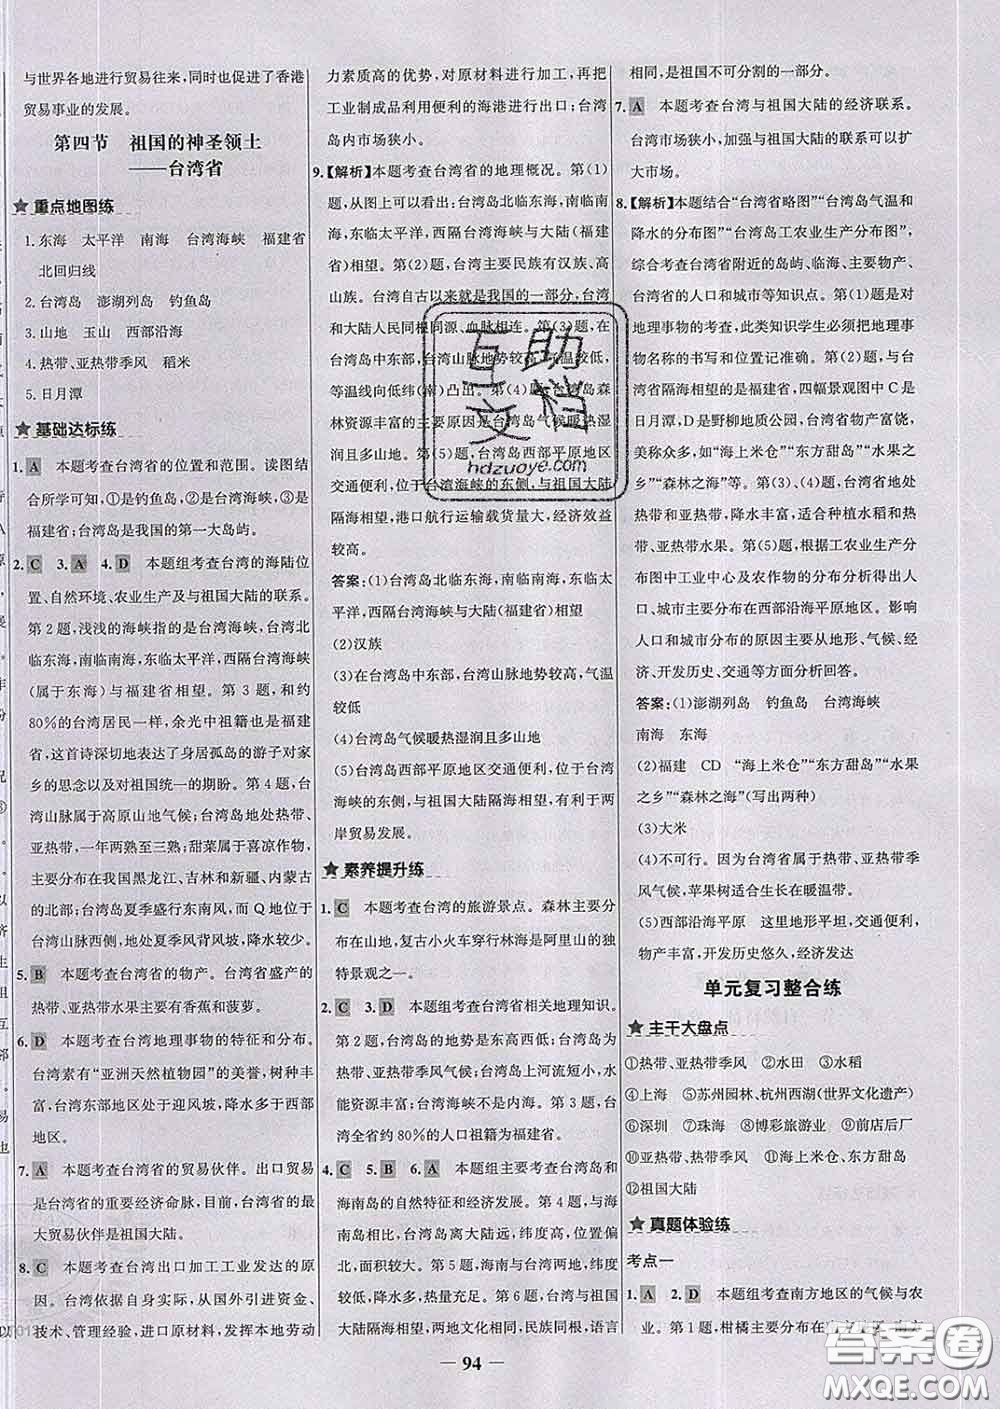 与世界各地进行贸易往来,同时也促进了香港
贸易事业的发展。
第四节 祖国的神圣领土
——台湾省
重点地图练
1. 东海 太平洋 南海 台湾海峡 福建省
北回归线
2. 台湾岛 澎湖列岛 钓鱼岛
3. 山地 玉山 西部沿海
4. 热带、亚热带季风 稻米
5. 日月潭
基础达标练
1. A 本题考查台湾省的位置和范围。读图结
合所学可知,①是钓鱼岛,②是台湾海峡,③是
福建省;台湾岛是我国的第一大岛屿。
2. C 3. A 4. D 本题组考查台湾的海陆位
置、自然环境、农业生产及与祖国大陆的联系。
第2题,浅浅的海峡指的是台湾海峡,台湾北
临东海,南临南海,东临太平洋,西隔台湾海峡
(属于东海)与福建省相望。第3题,和约
80%的台湾居民一样,余光中祖籍也是福建
省,这首诗深切地表达了身居孤岛的游子对家
乡的思念以及对祖国统一的期盼。第4题,台
湾山脉属于高原山地气候;台湾岛地处热带、
亚热带,一年两熟至三熟;甜菜属于喜凉作物,
主要分布在我国黑龙江、吉林和新疆、内蒙古
的北部;台湾岛夏季盛行东南风,而Q地位于
台湾山脉西侧,地处夏季风背风坡,降水较少。
5. B 本题考查台湾省的物产。台湾省盛产的
热带、亚热带水果主要有香蕉和菠萝。
6. D 本题考查台湾地理事物的特征和分布。
台湾素有“亚洲天然植物园”的美誉,树种多
样,台湾东部地区处于迎风坡,降水多于西部
地区。
7. A 本题考查台湾省的贸易伙伴。出口贸易
是台湾省的重要经济命脉,目前,台湾省的最
大贸易伙伴是祖国大陆。
8. C 本题考查台湾出口加工工业发达的原
因。台湾依据自身实际,从国外引进资金、
技术、管理经验,进口原材料,发挥本地劳动
力素质高的优势,对原材料进行加工,再把
工业制成品利用便利的海港进行出口;台湾
岛内市场狭小。
9.【解析】本题考查台湾省的地理概况。第(1)
题,从图上可以看出;台湾岛北临东海,南临
南海,东临太平洋,西隔台湾海峡与大陆(福建
省)相望。第(2)题,台湾主要民族有汉族、高
山族。台湾自古以来就是我国的一部分,台湾
和大陆人民同根同源、血脉相连。第(3)题,在
台湾岛中东部,台湾山脉地势较高,气温较低,
等温线向低纬(南)凸出。第(4)题,台湾岛森
林资源丰富的主要原因是台湾岛气候暖热湿
润且多山地。第(5)题,台湾西部平原地区
交通便利,位于台湾海峡的东侧,与祖国大陆
隔海相望,港口航行运输载货量大,经济效益
较高。
答案:(1)台湾岛北临东海,南临南海,东临太
平洋,西隔台湾海峡与大陆(福建省)相望
(2)汉族
(3)在台湾岛中东部,台湾山脉地势较高,气温
较低
(4)台湾岛气候暖热湿润且多山地
(5)台湾岛西部平原地区交通便利,位于台湾
海峡的东侧,与祖国大陆隔海相望,有利于两
岸贸易发展。
素养提升练
1. C 本题考查台湾的旅游景点。森林主要分
布在山地,复古小火车穿行林海是阿里山的独
特景观之一。
2. C 3. D 本题组考查台湾省相关地理知识。
第2题,台湾岛的地势是东高西低;台湾岛主
要是亚热带季风气候;台湾岛上河流短小,水
能资源丰富;台湾海峡不是内海。第3题,台
湾全省约80%的人口祖籍为福建省。
4. C 5. B 6. A 本题组主要考查台湾岛和
海南岛的自然特征和经济发展。第4题,台湾
岛东临太平洋,南临南海,纬度高,位置偏
北,面积大。第5题,海南与台湾两地,纬度
低,降水多,热量充足。第6题,台湾与祖国
大陆隔海相望,两地文化相同,民族同根,语言
相同,是祖国不可分割的一部分。
7. A 本题考查台湾与祖国大陆的经济联系。
台湾市场狭小,加强与祖国大陆的联系可以扩
大市场。
8.【解析】本题结合“台湾省略图”“台湾岛气温和
降水的分布图”“台湾岛工农业生产分布图”,
综合考查台湾省附近的岛屿、临海、主要农产
品、台湾省的人口和城市等知识点。第(1)题是对
地理事物的考查,此类知识学生必须把地理
事物名称的书写和位置记准确。第(2)题,与台
湾省隔海相望的是福建省,四幅景观图中C是
日月潭,D是野柳地质公园,台湾省物产富饶,
美称众多,如“海上米仓”“东方甜岛”“水果之
乡”“森林之海”等。第(3)、(4)题,台湾省地处
热带和亚热带,降水丰富,适合种植水稻和热
带、亚热带水果。第(5)题,根据工农业生产分
布图中工业中心及农作物的分布可分析得出人
口、城市主要分布在西部沿海平原地区。影响
人口和城市分布的原因主要从地形、气候、经
济、开发历史、交通等方面分析回答。
答案:(1)澎湖列岛 钓鱼岛 台湾海峡
南海 东海
(2)福建 CD “海上米仓”“东方甜岛”“水果
之乡”“森林之海”(写出两种)
(3)大米
(4)不可行。因为台湾省属于热带、亚热带季
风气候,苹果树适合生长在暖温带。
(5)西部沿海平原 这里地形平坦,交通便利,
物产丰富,开发历史悠久,经济发达
单元复习整合练
主干大盘点
①热带、亚热带季风 ②水田 ③水稻
④上海 ⑤苏州园林、杭州西湖(世界文化遗产)
⑥深圳 ⑦珠海 ⑧博彩旅游业 ⑨前店后厂
⑩亚热带、热带季风 ⑪海上米仓、东方甜岛
⑫祖国大陆
真题体验练
考点一
1. A 2. D 本题组考查南方地区的气候与农
业。第1题,柑橘主要分布在
— 94 —
互助文档
hdzuoye.com
答案圈
MXQE.COM